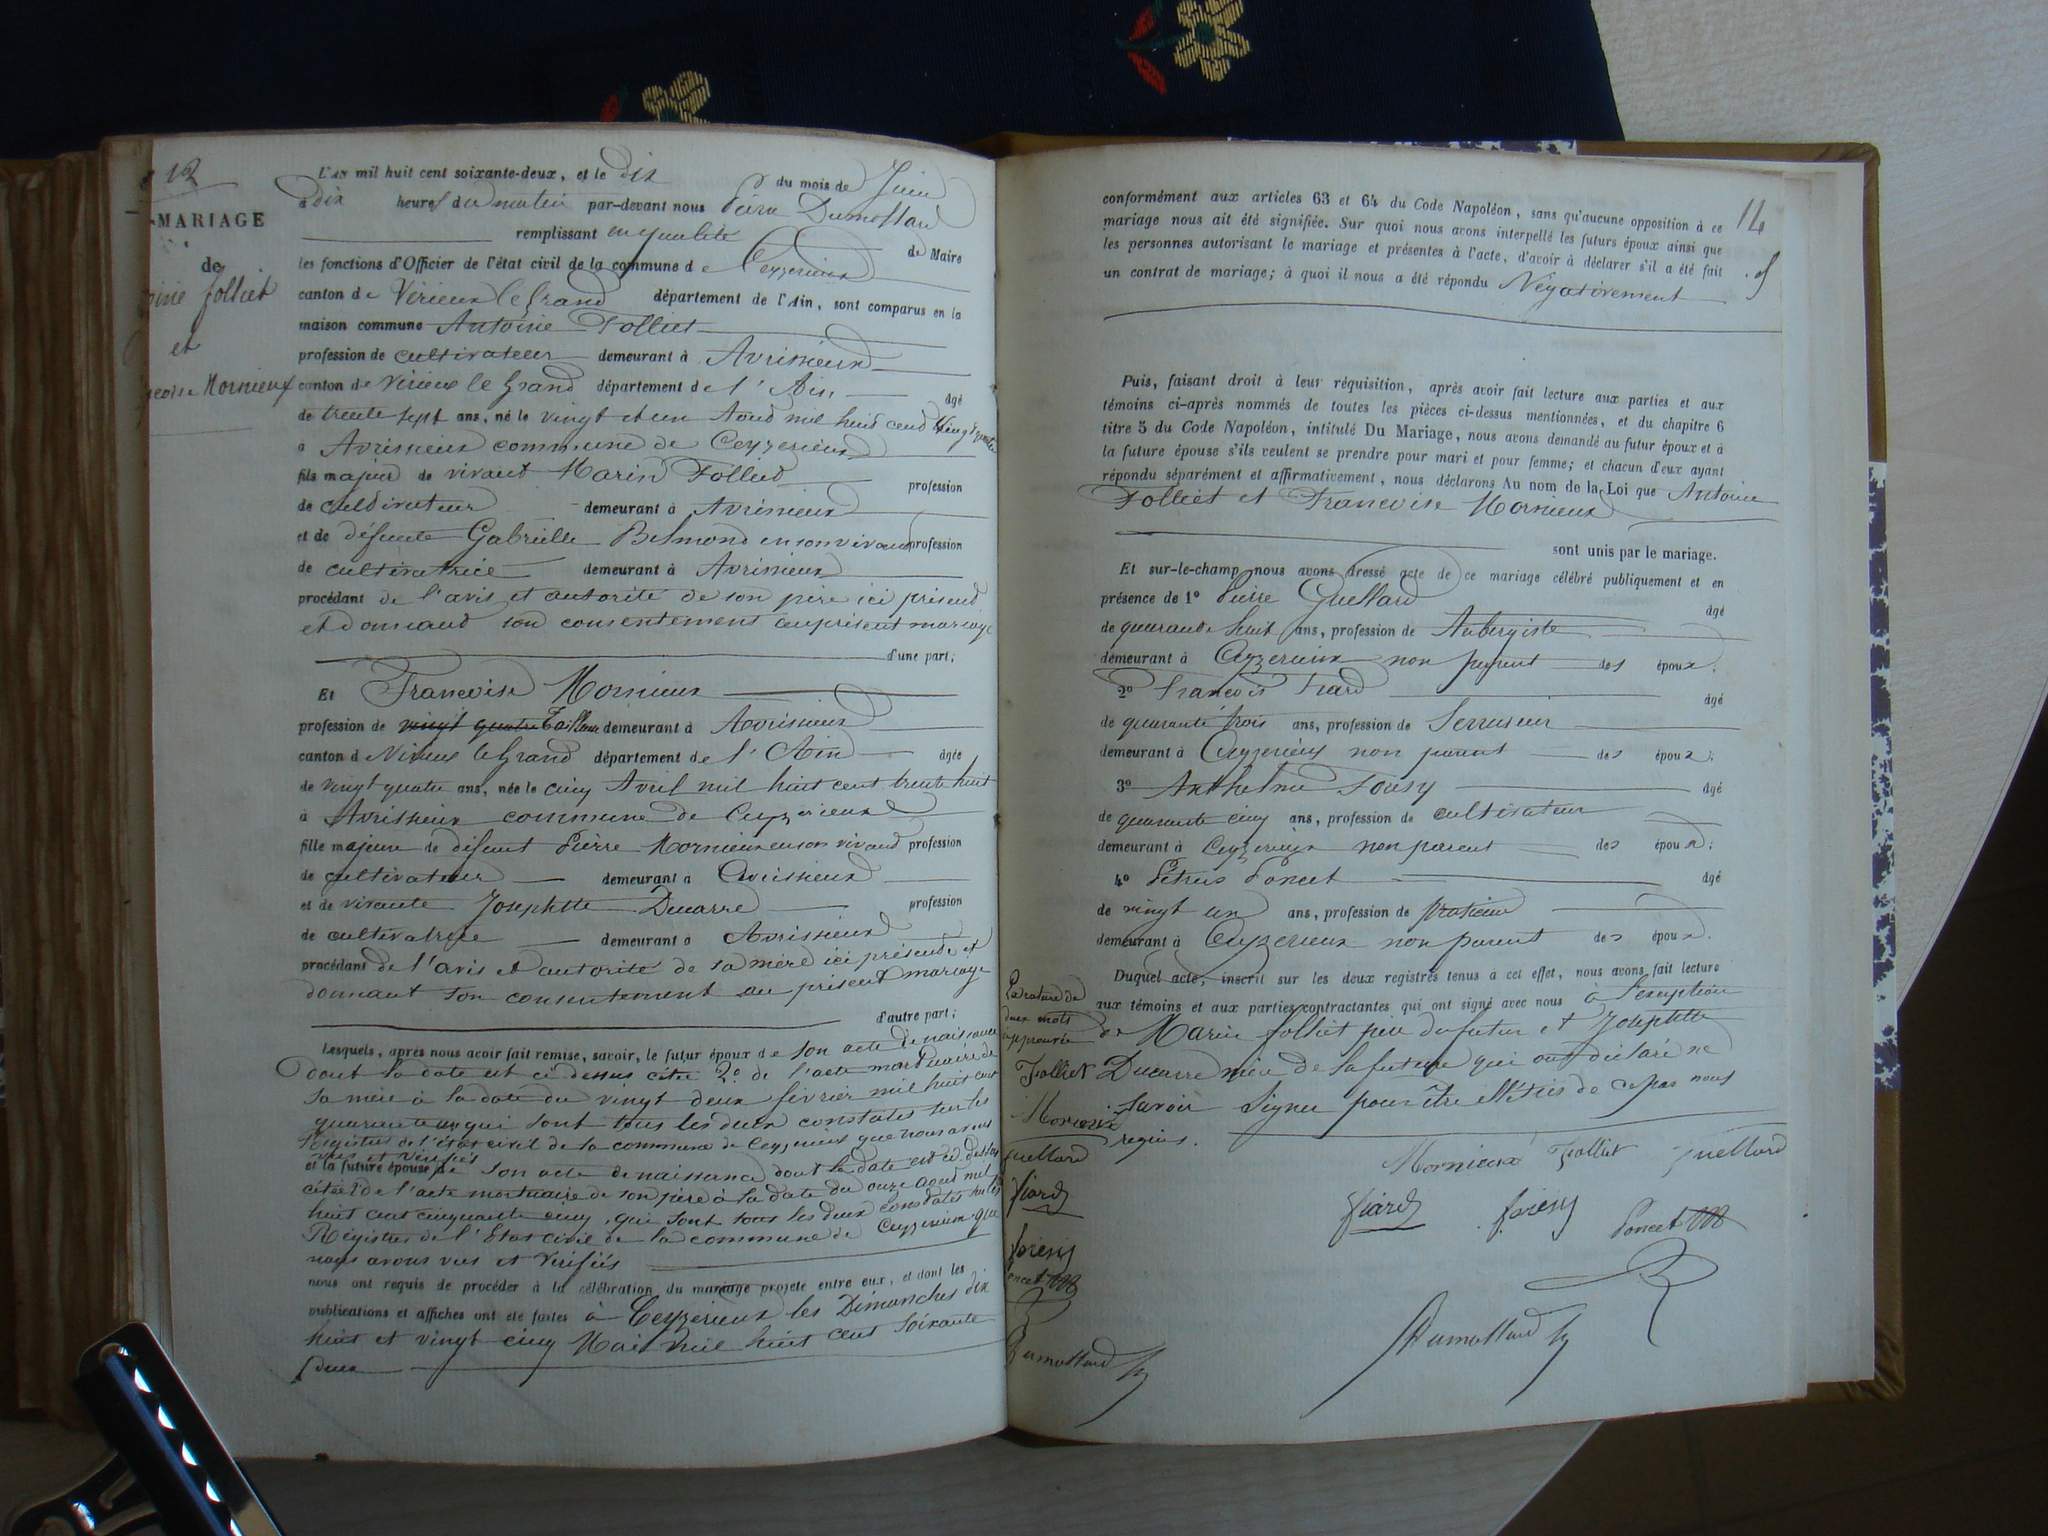 12
MARIAGE
de
oine folliet
et
Mornieux
L'AN mil huit cent soixante-deux, et le dix du mois de Juin
à dix heures du matin par-devant nous Pierre Dumollard
remplissant en qualité de Maire
les fonctions d'Officier de l'état civil de la commune de Ceyzerieux
canton de Virieux le Grand département de l'Ain, sont comparus en la
maison commune Antoine Folliet
profession de cultivateur demeurant à Avrissieux
canton de Virieux le Grand département de l'Ain âgé
de trente sept ans, né le vingt et un Aoud mil huit cend Vingt quatre
à Avrissieux commune de Ceyzerieux
fils majeur de vivant Marin Folliet profession
de culdivateur demeurant à Avrissieux
et de défunte Gabrielle Belmond en son vivant profession
de cultivatrice demeurant à Avrissieux
procédant de l'avis et autorité de son père ici présend
et donnand son consentement au présent mariage
d'une part;
Et Francoise Mornieux
profession de vingt quatre Tailleuse demeurant à Avrissieux
canton d Virieux le Grand département de l'Ain âgée
de vingt quatre ans, née le cinq Avril mil huit cent trente huit
à Avrissieux commune de Ceyzerieux
fille majeure de défunt Pierre Mornieux en son vivand profession
de cultivateur demeurant a Avrissieux
et de vivante Josephtte Ducarre profession
de cultivatrice demeurant à Avrissieux
procédant de l'avis et autorité de sa mère ici présende et
donnant son consentement au présent mariage
d'autre part;
Lesquels, après nous avoir fait remise, savoir, le futur époux de son acte de naissance
dont la date est ci dessus citée 2o de l'acte mortuaire de
sa mère à la date du vingt deux février mil huit cent
quarante un qui sont tous les deux constatés sur les
Registres de l'état civil de la commune de Ceyzerieux que nous avons
vus et vérifiés
et la future épouse de son acte de naissance dont la date est ci dessus
citée 2o de l'acte mortuaire de son père à la date du onze aoud mil
huit cent cinquante cinq, qui sont tous les deux constatés sur les
Régistres de l'Etat Civil de la commune de Ceyzerieux que
nous avons vus et Vérifiés
nous ont requis de procéder à la célébration du mariage projeté entre eux, et dont les
publications et affiches ont été faites à Ceyzerieux les Dimanches dix
huit et vingt cinq Mai mil huit cent soixante
deux
14
conformément aux articles 63 et 64 du Code Napoléon, sans qu'aucune opposition à ce
mariage nous ait été signifiée. Sur quoi nous avons interpellé les futurs époux ainsi que
les personnes autorisant le mariage et présentes à l'acte, d'avoir à déclarer s'il a été fait
un contrat de mariage; à quoi il nous a été répondu Négativement
Puis, faisant droit à leur réquisition, après avoir fait lecture aux parties et aux
témoins ci-après nommés de toutes les pièces ci-dessus mentionnées, et du chapitre 6
titre 5 du Code Napoléon, intitulé Du Mariage, nous avons demandé au futur époux et à
la future épouse s'ils veulent se prendre pour mari et pour femme; et chacun d'eux ayant
répondu séparément et affirmativement, nous déclarons Au nom de la Loi que Antoine
Folliet et Francoise Mornieux
sont unis par le mariage.
Et sur-le-champ nous avons dressé acte de ce mariage célébré publiquement et en
présence de 1o Pierre Guellard âgé
de quarande huit ans, profession de Aubergiste
demeurant à Ceyzerieux non parent des époux.
2o Francois Fiard âgé
de quarante trois ans, profession de Serrurier
demeurant à Ceyzerieux non parent des époux;
3o Anthelme Forisy âgé
de quarante cinq ans, profession de cultivateur
demeurant à Ceyzerieux non parent des époux;
4o Pétrus Poncet âgé
de vingt un ans, profession de praticien
demeurant à Ceyzerieux non parent des époux.
Duquel acte, inscrit sur les deux registres tenus à cet effet, nous avons fait lecture
aux témoins et aux parties contractantes qui ont signé avec nous à l'exception
de Marin folliet père du futur et Josephtte
Ducarre mère de la future qui ont déclaré ne
savoir signer pour être illétrés de ce par nous
requis.
La rature de
deux mots
approuvée
Folliet
Mornieux
Guellard
fiard
forisy
Poncet
Dumollard
Mornieux Folliet Guellard
fiard forisy Poncet
Dumollard